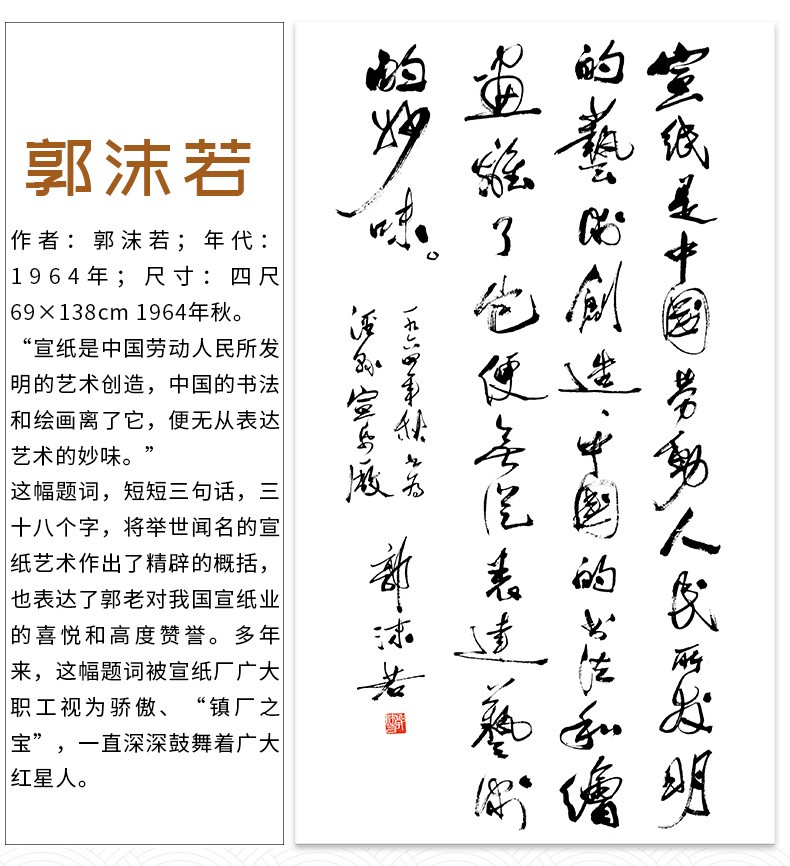 郭沫若
作者：郭沫若；年代：
1964年；尺寸：四尺
69×138cm 1964年秋。
“宣纸是中国劳动人民所发
明的艺术创造，中国的书法
和绘画离了它，便无从表达
艺术的妙味。”
这幅题词，短短三句话，三
十八个字，将举世闻名的宣
纸艺术作出了精辟的概括，
也表达了郭老对我国宣纸业
的喜悦和高度赞誉。多年
来，这幅题词被宣纸厂广大
职工视为骄傲、“镇厂之
宝”，一直深深鼓舞着广大
红星人。
宣紙是中國劳動人民所发明
的藝術創造、中國的书法和繪
畫離了它便無從表達藝術
的妙味。
一九六四年秋书为
泾县宣帋厰
郭沫若